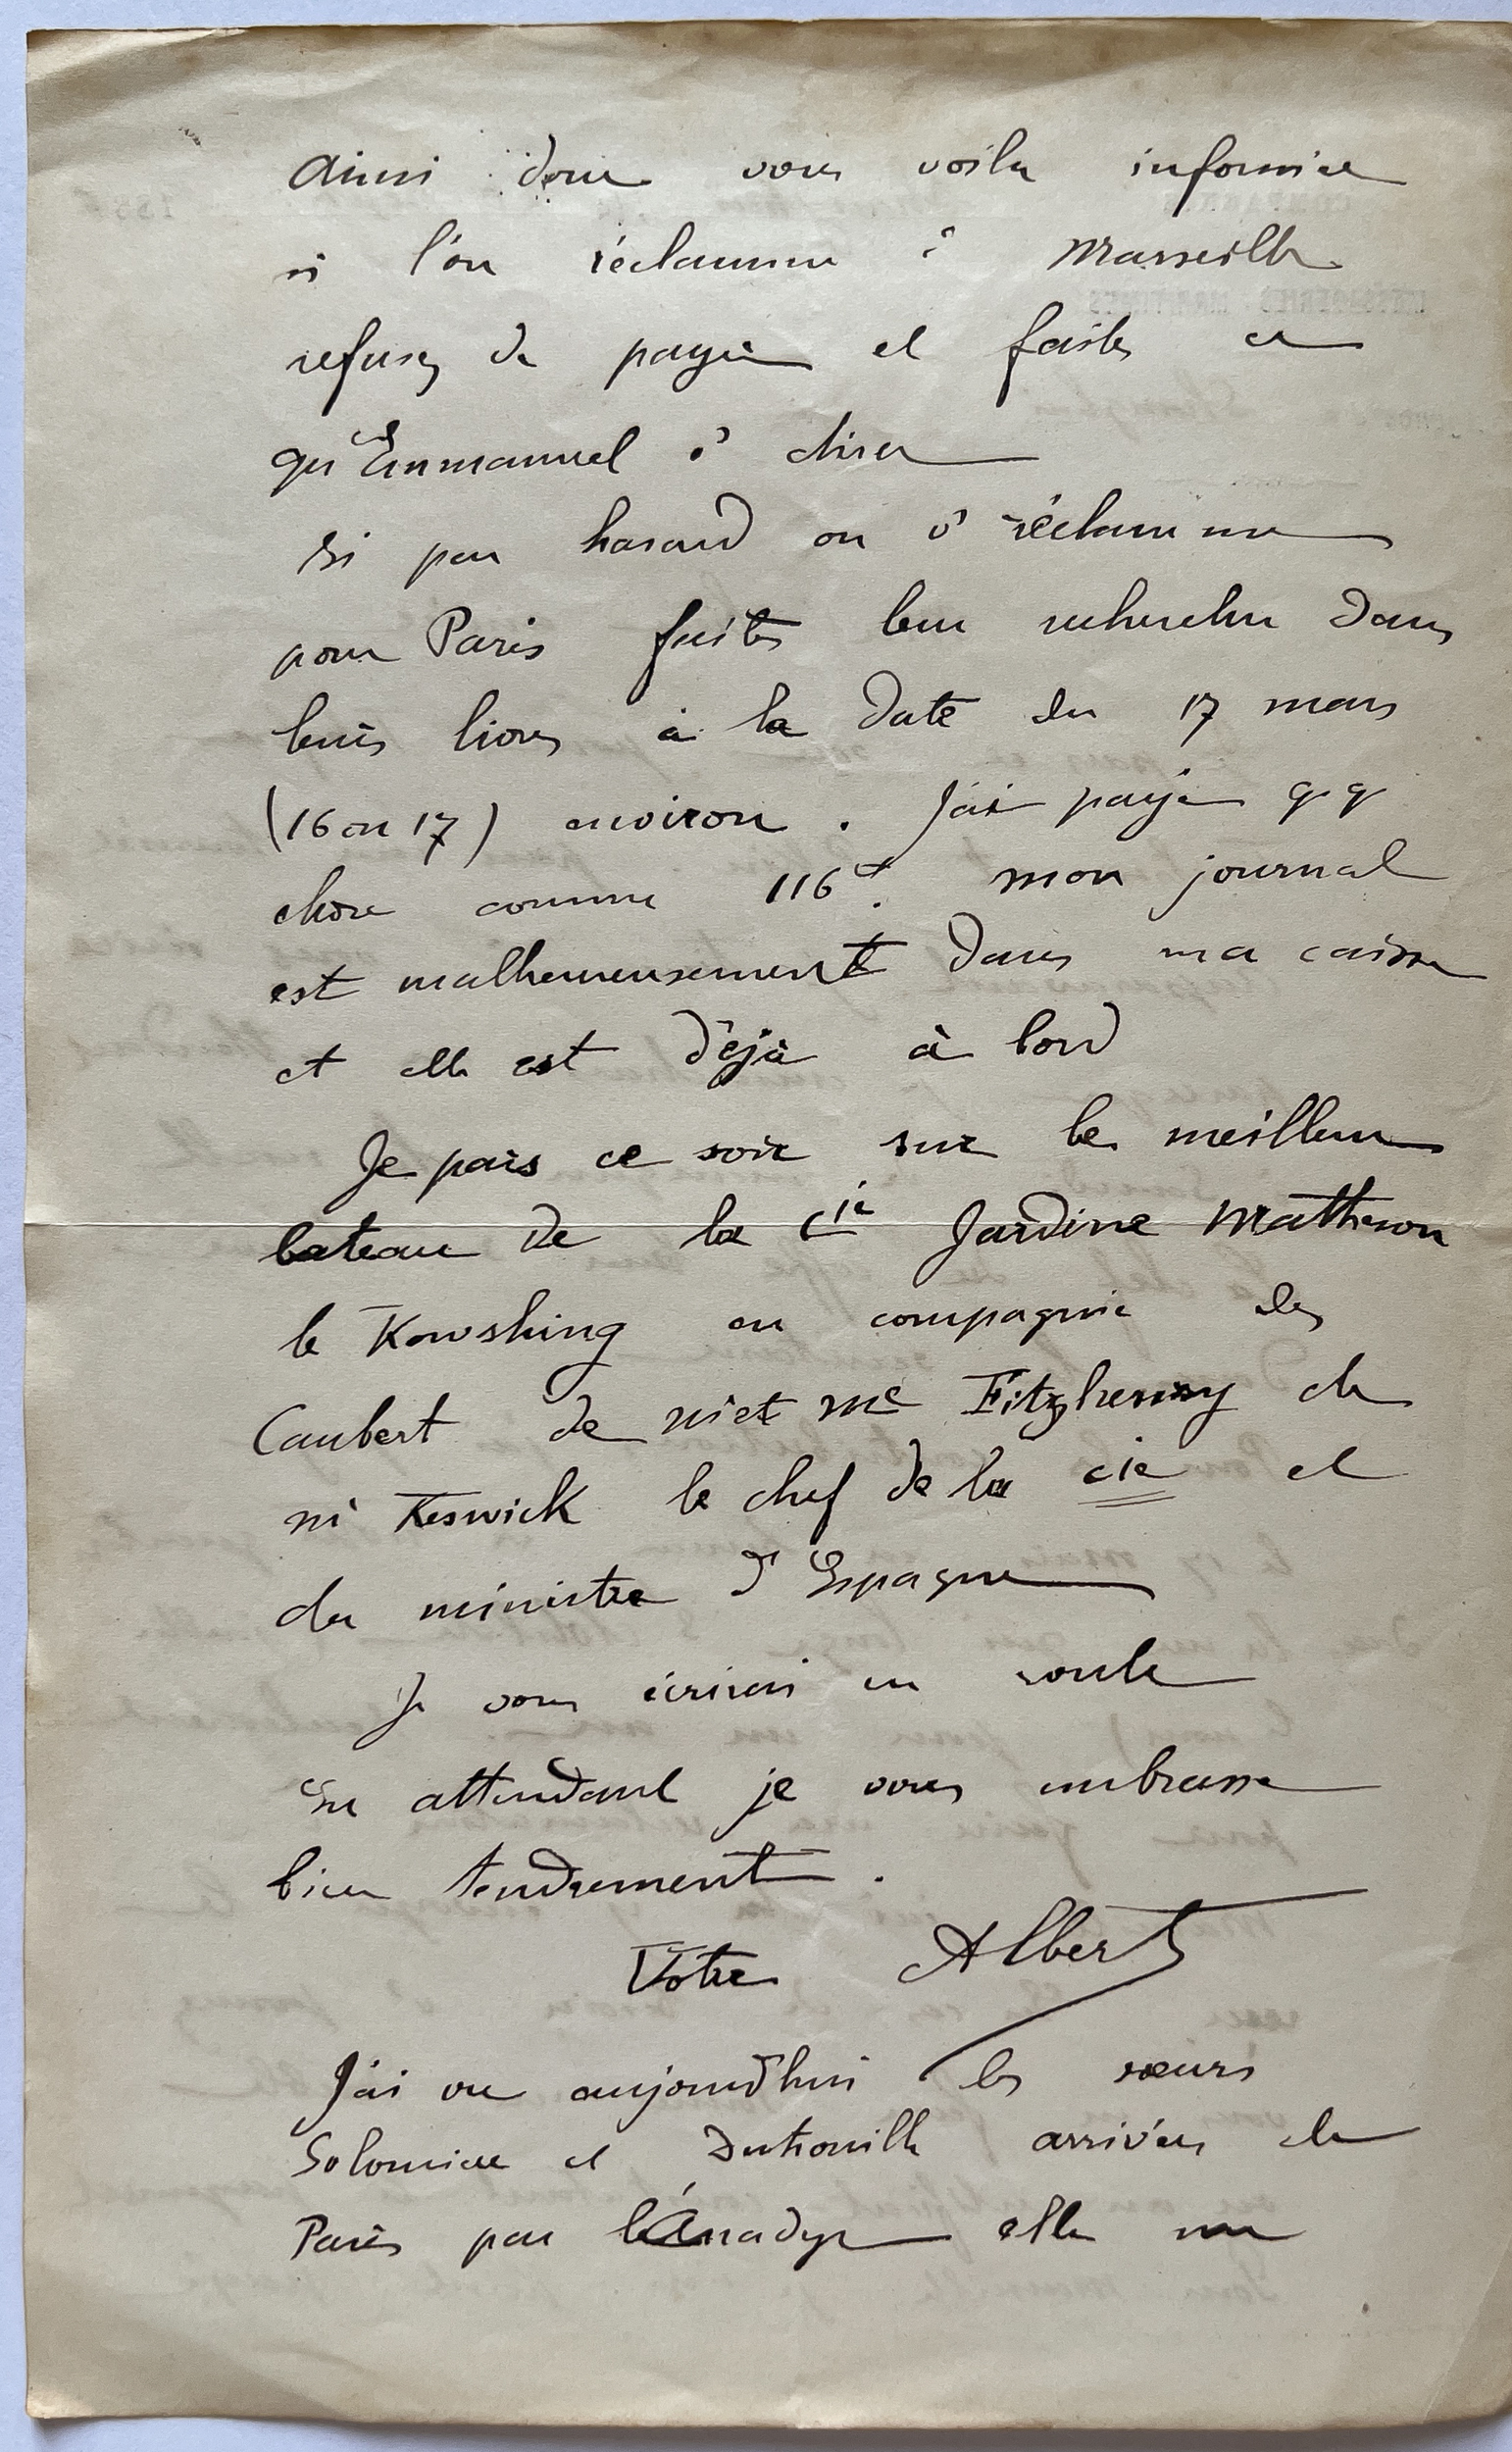 Ainsi donc vous voilà informée
si l'on réclamme à Marseille
refusez de payer et faites ce
qu'Emmanuel v' dira
Si par hasard on v' réclamme
pour Paris faites leur rechercher dans
leurs livres à la date du 17 mars
(16 ou 17) environ. J'ai payé qq
chose comme 116 mon journal
est malheureusement dans ma caisse
et elle est déjà à bord
Je pars ce soir sur le meilleur
bateau de la Cie Jardine Matheson
le Kowshing en compagnie des
Caubert de Mr et Me Fitzhenry de
Mr Keswick le chef de la Cie et
du ministre d'Espagne
Je vous écrirai en route
En attendant je vous embrasse
bien tendrement.
Votre Albert
J'ai vu aujourd'hui les sœurs
et arrivées de
Paris par l'Anadyr elle me